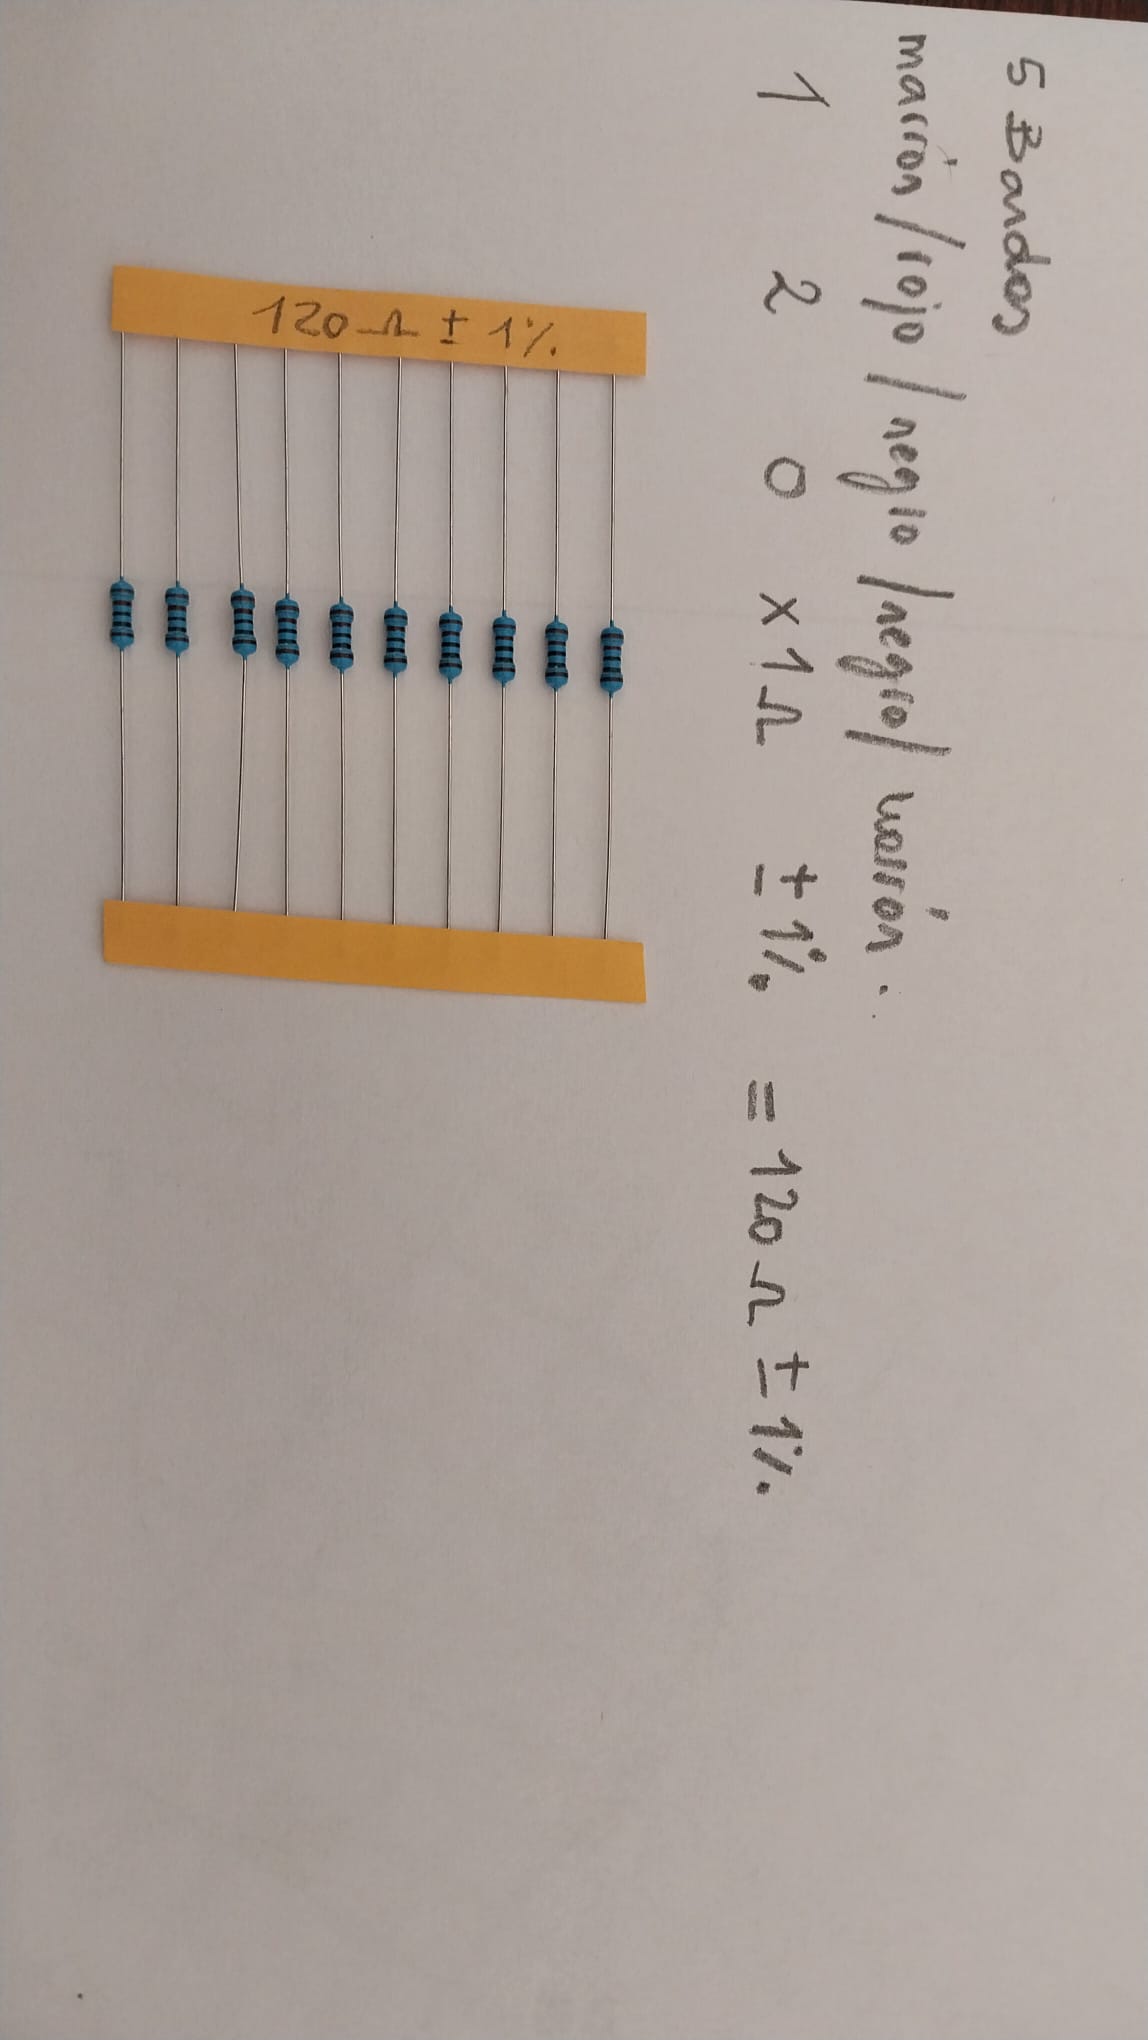 5 Bandas
marrón / rojo / negro / negro / marrón.
1 2 0 x 1 Ω ± 1% = 120 Ω ± 1%.
120 Ω ± 1%.